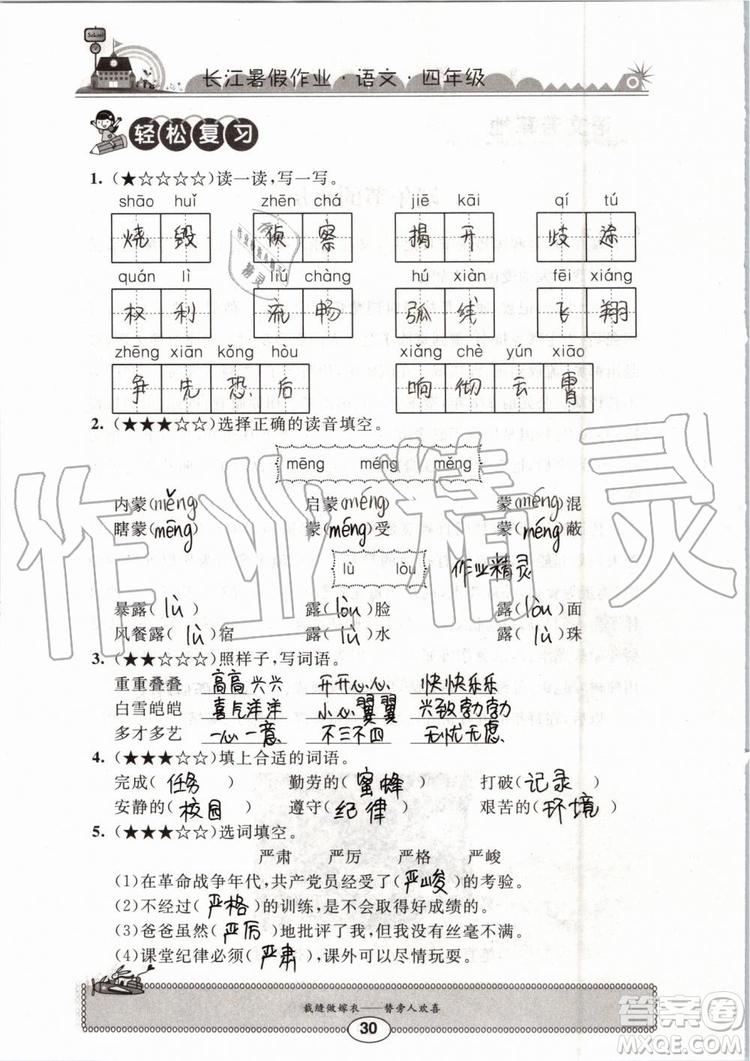 School
长江暑假作业·语文·四年级
轻松复习
1.(★☆☆☆☆)读一读,写一写。
shāo huǐ zhēn chá jiē kāi qí tú
烧毁 侦察 揭开 歧途
quán lì liú chàng hú xiàn fēi xiáng
权利 流畅 弧线 飞翔
zhēng xiān kǒng hòu xiǎng chè yún xiāo
争先恐后 响彻云霄
2.(★★★☆☆)选择正确的读音填空。
mēng méng měng
内蒙(měng) 启蒙(méng) 蒙(méng)混
瞎蒙(mēng) 蒙(méng)受 蒙(méng)蔽
lù lòu 作业精灵
暴露(lù) 露(lòu)脸 露(lòu)面
风餐露(lù)宿 露(lù)水 露(lù)珠
3.(★★☆☆☆)照样子,写词语。
重重叠叠 高高兴兴 开开心心 快快乐乐
白雪皑皑 喜气洋洋 小心翼翼 兴致勃勃
多才多艺 一心一意 不三不四 无忧无愿
4.(★★☆☆☆)填上合适的词语。
完成(任务) 勤劳的(蜜蜂) 打破(记录)
安静的(校园) 遵守(纪律) 艰苦的(环境)
5.(★★★☆☆)选词填空。
严肃 严厉 严格 严峻
(1)在革命战争年代,共产党员经受了(严峻)的考验。
(2)不经过(严格)的训练,是不会取得好成绩的。
(3)爸爸虽然(严厉)地批评了我,但我没有丝毫不满。
(4)课堂纪律必须(严肃),课外可以尽情玩耍。
裁缝做嫁衣——替旁人欢喜
30
作业精灵
答案圈
MXQE.COM